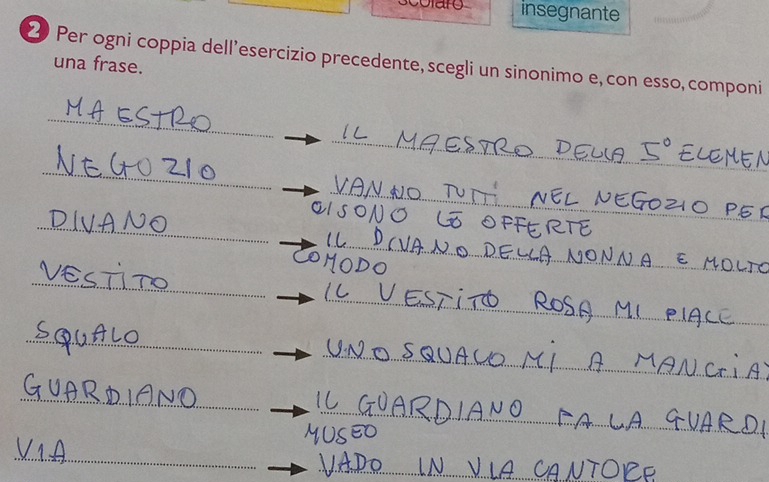 scolaro insegnante
2 Per ogni coppia dell'esercizio precedente, scegli un sinonimo e, con esso, componi
una frase.
MAESTRO → IL MAESTRO DELLA 5° ELEMEN
NEGOZIO → VANNO TUTTI NEL NEGOZIO PER
CISONO LE OFFERTE
DIVANO → IL DIVANO DELLA NONNA E MOLTO
COMODO
VESTITO → IL VESTITO ROSA MI PIACE
SQUALO → UNO SQUALO MI A MANGIA
GUARDIANO → IL GUARDIANO FA LA GUARDI
MUSEO
VIA → VADO IN VIA CANTORE